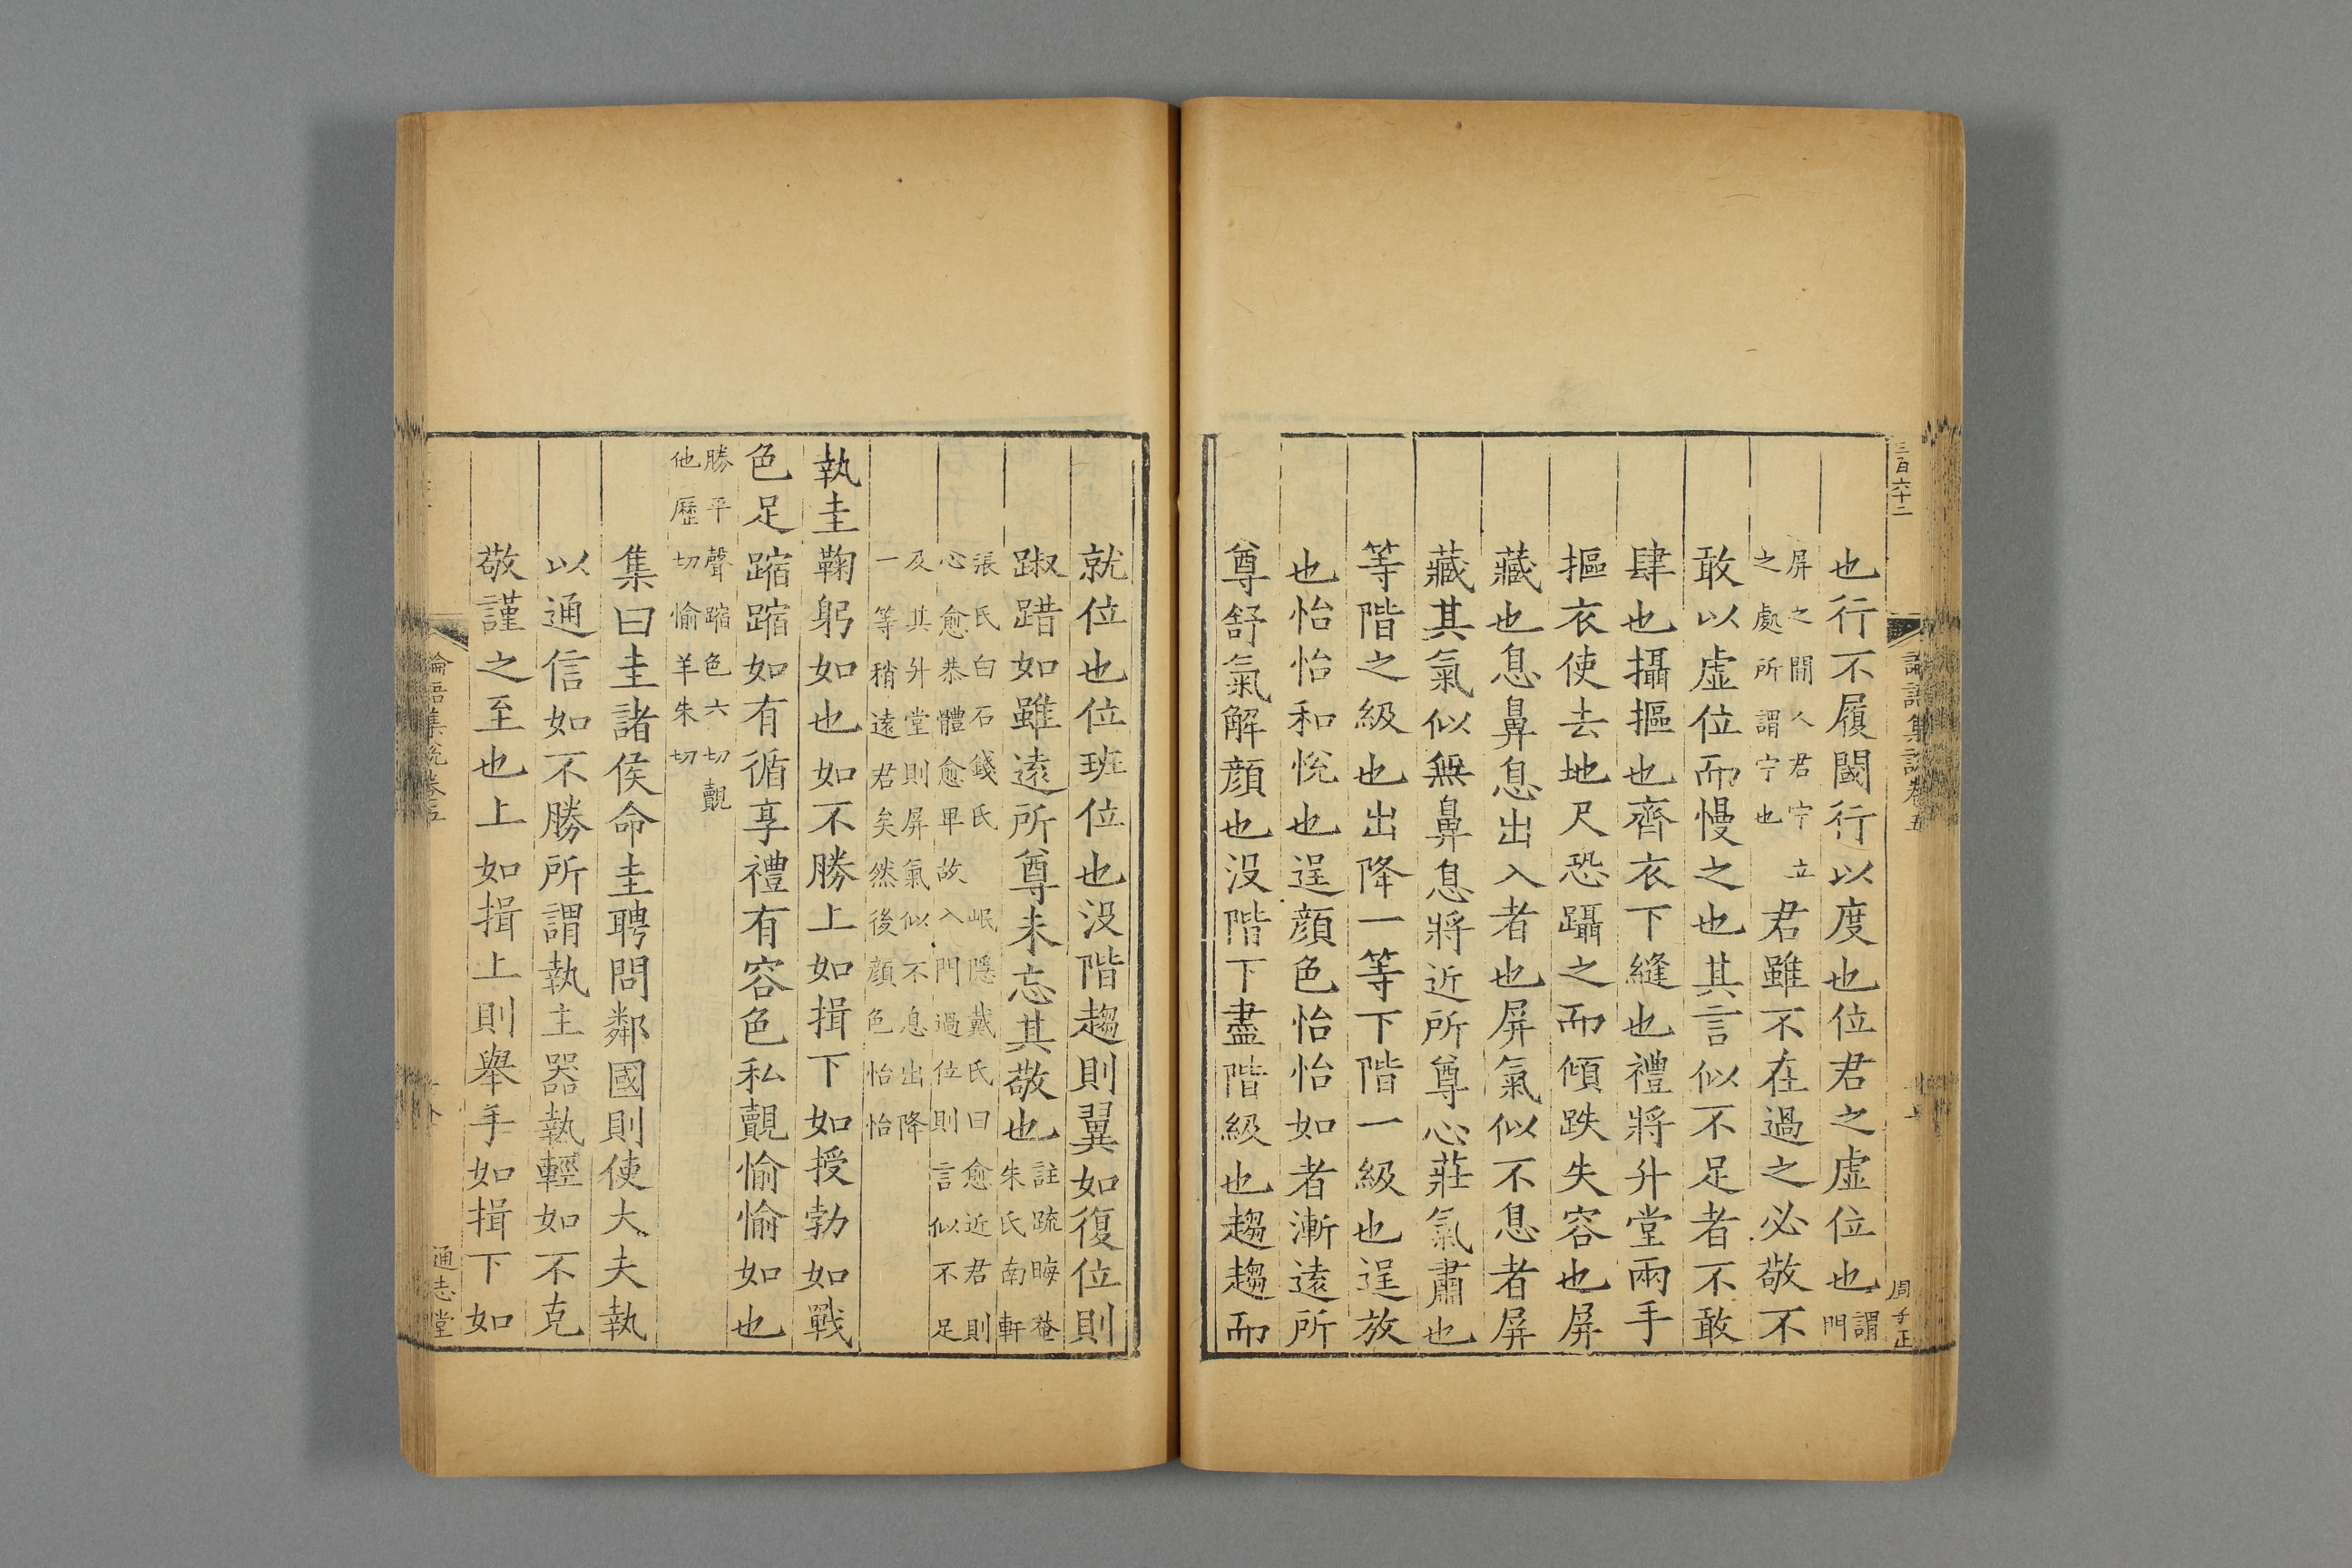 三百六十二
也行不履閾行以度也位君之虛位也謂門
屏之間人君宁立之處所謂宁也君雖不在過之必敬不
敢以虛位而慢之也其言似不足者不敢
肆也攝摳也齊衣下縫也禮將升堂兩手
摳衣使去地尺恐躡之而傾跌失容也屏
藏也息鼻息出入者也屏氣似不息者屏
藏其氣似無鼻息將近所尊心莊氣肅也
等階之級也出降一等下階一級也逞放
也怡怡和悅也逞顔色怡怡如者漸遠所
尊舒氣解顔也没階下盡階級也趨趨而
就位也位班位也没階趨則翼如復位則
踧踖如雖遠所尊未忘其敬也註疏晦菴朱氏南軒
張氏白石錢氏岷隱戴氏曰愈近君則心愈恭體愈畢故入門過位則言似不足
及其升堂則屏氣似不息出降一等稍遠君矣然後顔色怡怡
執圭鞠躬如也如不勝上如揖下如授勃如戰
色足蹜蹜如有循享禮有容色私覿愉愉如也
勝平聲蹜色六切覿他歷切愉羊朱切
集曰圭諸侯命圭聘問鄰國則使大夫執
以通信如不勝所謂執主器執輕如不克
敬謹之至也上如揖上則舉手如揖下如
論語集說卷五
通志堂